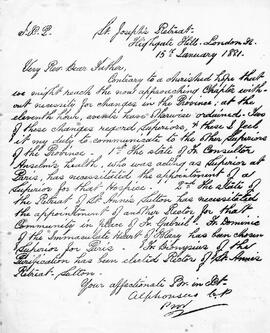 J.X.P. St. Joseph's Retreat.
Highgate Hill. London N.
15th January 1881.
Very Rev. Dear Father,
Contrary to a cherished hope that
we might reach the now approaching Chapter with-
out necessity for changes in the Province; at the
eleventh hour, events have otherwise ordained. Two
of these changes regard Superiors, & these I feel
it my duty to communicate to the other Superiors
of the Province. 1st The state of Fr. Consultor
Anselm's health, who was acting as Superior at
Paris, has necessitated the appointment of a
Superior for that Hospice. 2nd The state of
the Retreat of St. Anne's Sutton has necessitated
the appointment of another Rector for that
Community in place of Fr. Gabriel. Fr. Dominic
of the Immaculate Heart of Mary has been chosen
Superior for Paris. Fr. Dionysius of the
Purification has been elected Rector of St. Anne's
Retreat. Sutton.
Your affectionate Br. in Xt.
Alphonsus C.P.
Prov.